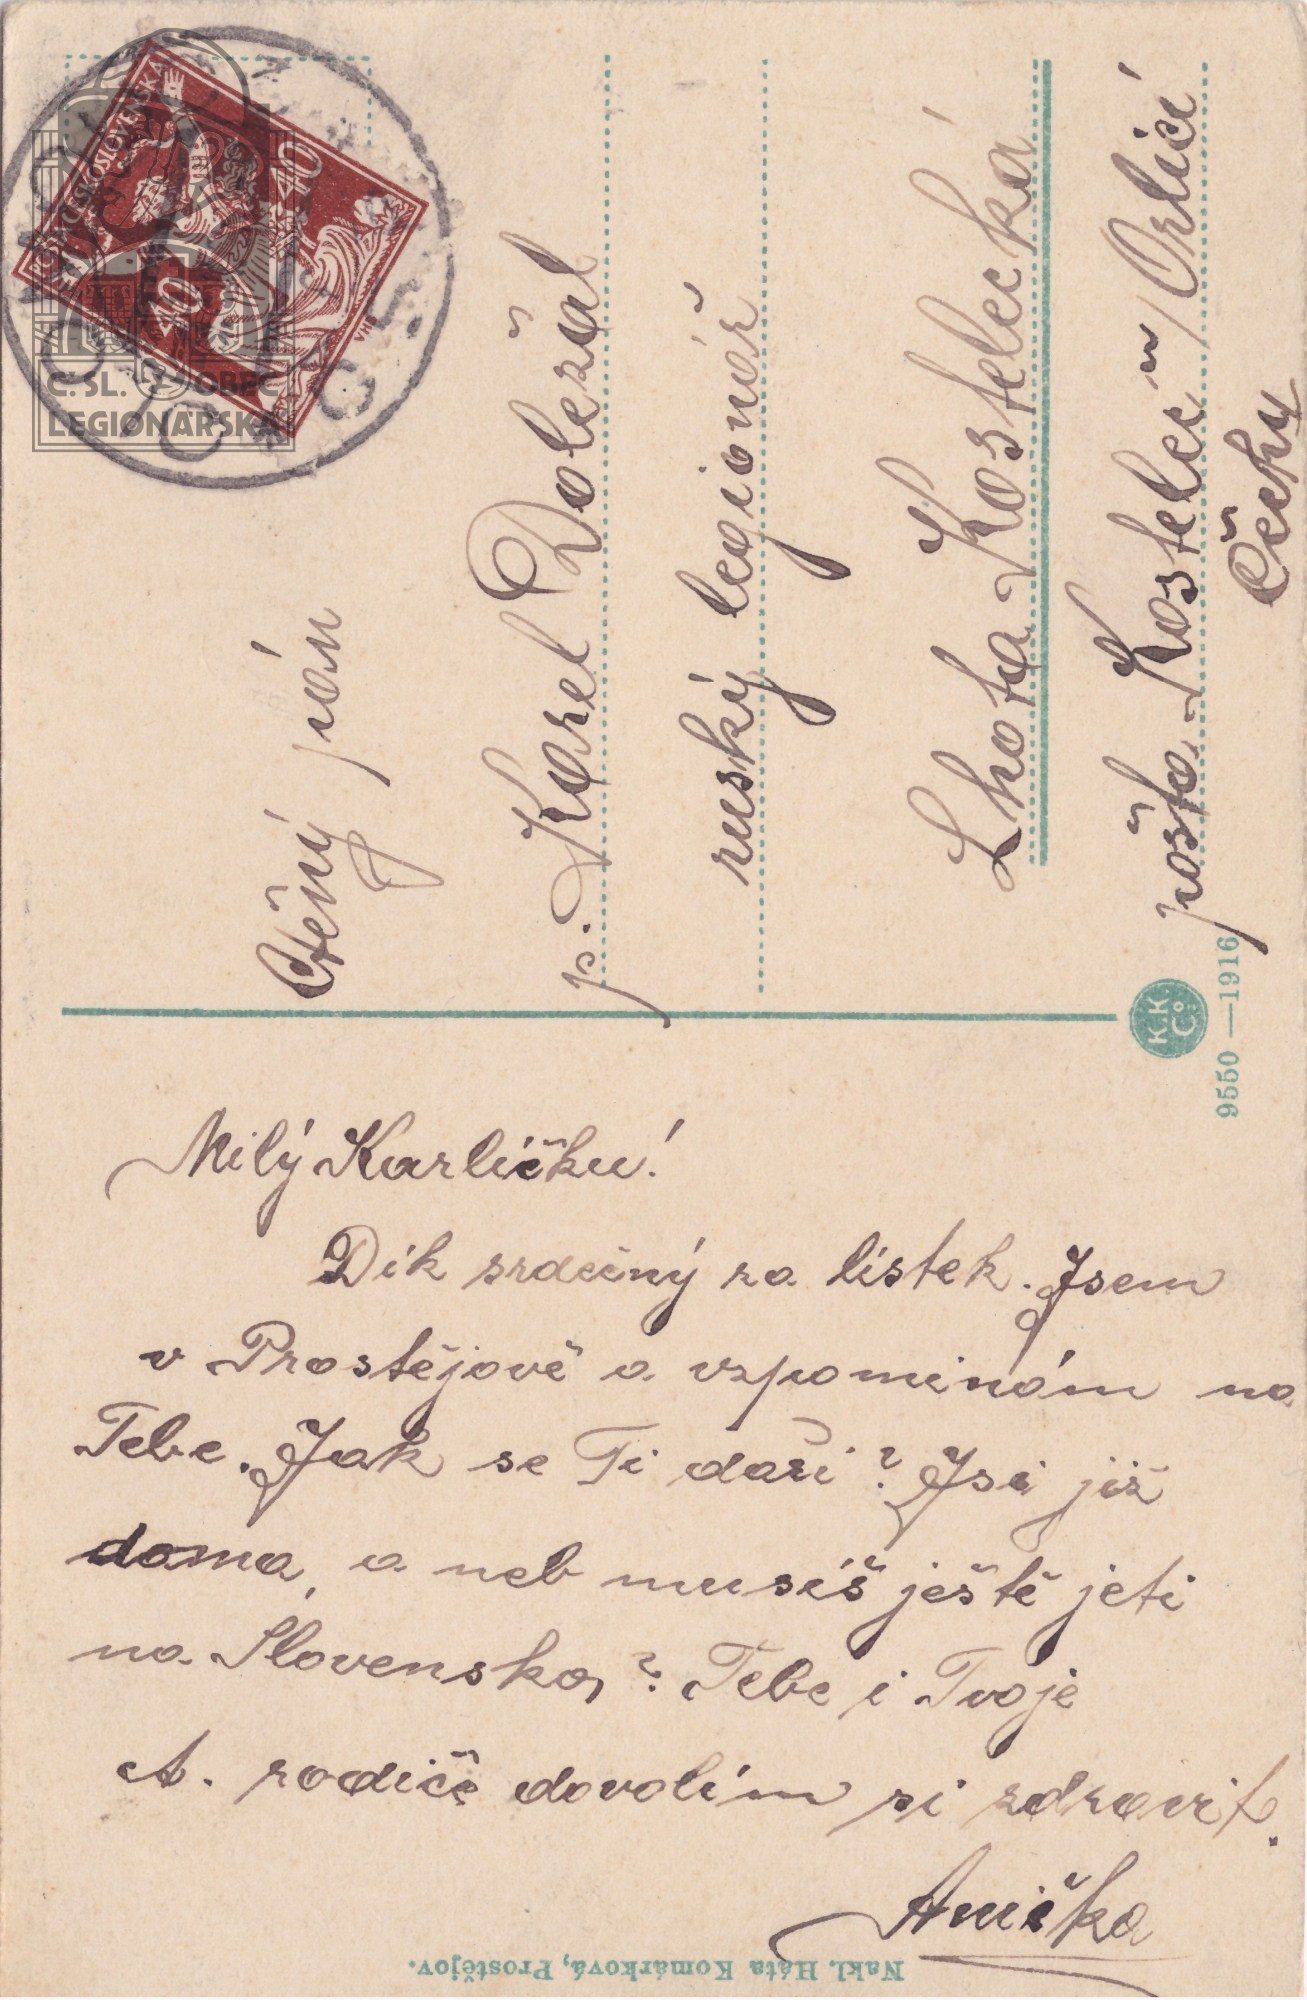 POŠTA ČESKOSLOVENSKÁ
40
40
VHB
Č. SL. OBEC
LEGIONÁŘSKÁ
Ctěný pán
p. Karel Doležal
ruský legionář
Lhota Kostelecká
pošta Kostelec n/Orlicí
Čechy
K.K.
Co.
9550 — 1916
Milý Karlíčku!
Dík srdečný za lístek. Jsem
v Prostějově a vzpomínám na
Tebe. Jak se Ti daří? Jsi již
doma, a neb musíš ještě jeti
na Slovensko? Tebe i Tvoje
A. rodiče dovolím si zdravit.
Anička
Nakl. Háta Komárková, Prostějov.